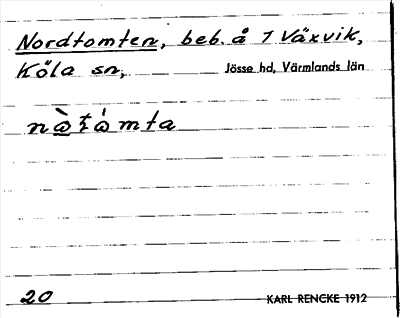 Nordtomten, beb. å 1 Växvik,
Köla sn, Jösse hd, Värmlands län
nὼtώmta
20 KARL RENCKE 1912